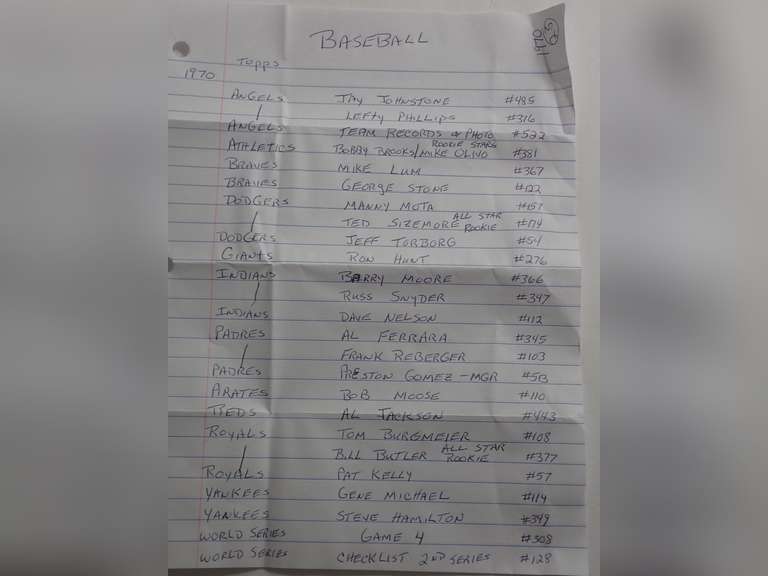 BASEBALL
1970
Topps
1970
ANGELS JAY JOHNSTONE #485
LEFTY PHILLIPS #316
ANGELS TEAM RECORDS & PHOTO #522
ATHLETICS BOBBY BROOKS/MIKE OLIVO ROOKIE STARS #381
BRAVES MIKE LUM #367
BRAVES GEORGE STONE #122
DODGERS MANNY MOTA #157
TED SIZEMORE ALL STAR ROOKIE #174
DODGERS JEFF TORBORG #54
GIANTS RON HUNT #276
INDIANS BARRY MOORE #366
RUSS SNYDER #347
INDIANS DAVE NELSON #112
PADRES AL FERRARA #345
FRANK REBERGER #103
PADRES PRESTON GOMEZ - MGR #513
PIRATES BOB MOOSE #110
REDS AL JACKSON #443
ROYALS TOM BURGMEIER #108
BILL BUTLER ALL STAR ROOKIE #377
ROYALS PAT KELLY #57
YANKEES GENE MICHAEL #114
YANKEES STEVE HAMILTON #349
WORLD SERIES GAME 4 #308
WORLD SERIES CHECKLIST 2ND SERIES #128